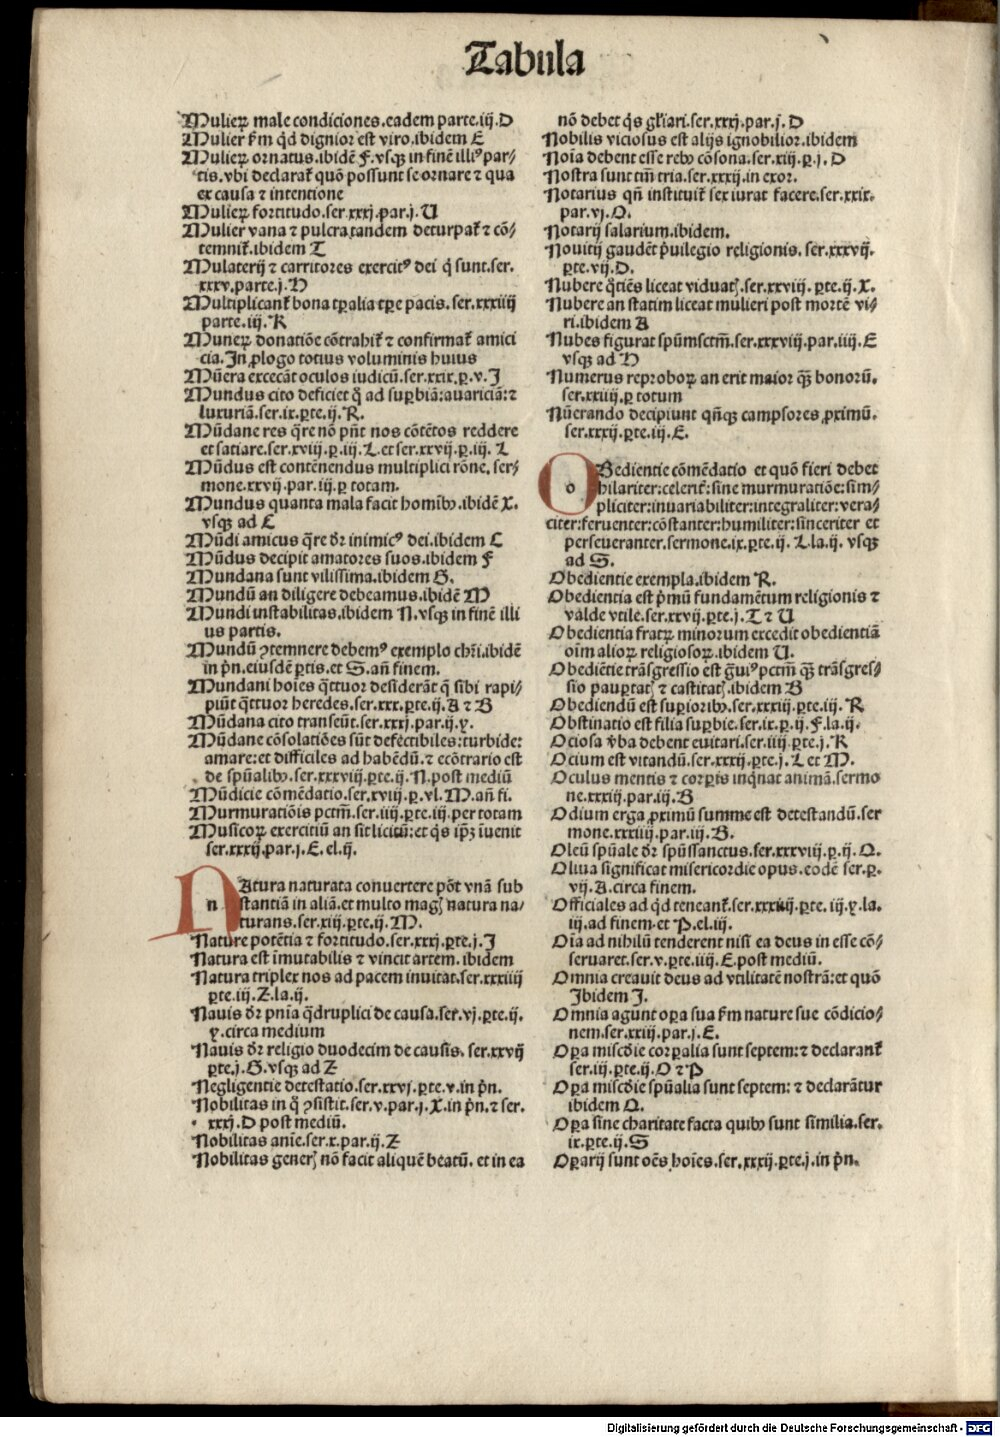 Tabula
Mulieꝝ male condiciones.eadem parte.iij.D
Mulier ẜm qd dignior est viro.ibidem E
Mulieꝝ ornatus.ibidē F.vsqꝫ in finē illiꝰ par/
tis.vbi declarat quō possunt se ornare ⁊ qua
ex causa ⁊ intentione
Mulieꝝ fortitudo.ser.xxxj.par.j.U
Mulier vana ⁊ pulcra tandem deturpat ⁊ cō/
temnit.ibidem T
Mulaterij ⁊ carritores exercitꝰ dei q̄ sunt.ser.
xxxv.parte.j.H
Multiplicant bona tꝑalia tꝑe pacis.ser.xxxiiij
parte.iij.K
Muneꝝ donatiōe cōtrahit ⁊ confirmat amici
cia.In ꝓlogo totius voluminis huius
Mūera excecāt oculos iudicū.ser.xxix.ꝑ.v.I
Mundus cito deficiet q̄ ad suꝑbiā:auariciā:⁊
luxuriā.ser.ix.ꝑte.ij.R.
Mūdane res q̄re nō pn̄t nos cōtētos reddere
et satiare.ser.xviij.ꝑ.iij.L.et ser.xxvij.ꝑ.iij. L
Mūdus est contēnendus multiplici rōne. ser/
mone.xxvij.par.iij.ꝑ totam.
Mundus quanta mala facit homībꝫ.ibidē X.
vsqꝫ ad C
Mūdi amicus q̄re dr̄ inimicꝰ dei.ibidem C
Mūdus decipit amatores suos.ibidem F
Mundana sunt vilissima.ibidem G.
Mundū an diligere debeamus.ibidē M
Mundi instabilitas.ibidem N.vsqꝫ in finē illi
us partis.
Mundū ꝯtemnere debemꝰ exemplo chr̄i.ibidē
in pn̄.eiusdē ꝑtis.et S.añ finem.
Mundani hoies q̄ttuor desiderāt q̄ sibi rapi/
piūt q̄ttuor heredes.ser.xxx.ꝑte.ij.A ⁊ B
Mūdana cito transeūt.ser.xxxj.par.ij.y.
Mūdane cōsolatiōes sūt defectibiles:turbide:
amare:et difficiles ad habēdū.⁊ ecōtrario est
de spūalibꝫ.ser.xxxviij.ꝑte.ij.N.post mediū
Mūdicie cōmēdatio.ser.xviij.ꝑ.vl.M.añ fi.
Murmuratiōis pctm̄.ser.iiij.ꝑte.iij.per totam
Musicoꝝ exercitiū an sit licitū:et q̄s ipꝫ īuenit
ser.xxxij.par.j.E.el.ij.
NAtura naturata conuertere pōt vnā sub
n stantiā in aliā.et multo magꝭ natura na/
turans.ser.xiij.ꝑte.ij.M.
Nature potētia ⁊ fortitudo.ser.xxxj.ꝑte.j.I
Natura est īmutabilis ⁊ vincit artem. ibidem
Natura triplex nos ad pacem inuitat.ser.xxxiiij
ꝑte.iij.Z.la.ij.
Nauis dr̄ pnīa q̄druplici de causa.ser.vj.ꝑte.ij.
y.circa medium
Nauis dr̄ religio duodecim de causis. ser.xxvij
ꝑte.j.G.vsqꝫ ad Z
Negligentie detestatio.ser.xxvj.ꝑte.v.in pn̄.
Nobilitas in q̄ ꝯsistit.ser.v.par.j.X.in pn̄.⁊ ser.
xxxj.D post mediū.
Nobilitas anīe.ser.x.par.ij.Z
Nobilitas generꝭ nō facit aliquē beatū. et in ea
nō debet q̄s gl'iari.ser.xxxj.par.j.D
Nobilis viciosus est alijs ignobilior.ibidem
Noīa debent esse rebꝫ cōsona.ser.xiij.ꝑ.j.D
Nostra sunt tm̄ tria.ser.xxxij.in exor.
Notarius qñ instituit sex iurat facere.ser.xxix.
par.vj.O.
Notarij salarium.ibidem.
Nouitij gaudēt p̄uilegio religionis. ser.xxxvij.
ꝑte.vij.D.
Nubere q̄tiēs liceat viduatꝭ.ser.xxviij.ꝑte.ij.X.
Nubere an statim liceat mulieri post mortē vi/
ri.ibidem A
Nubes figurat spūmsctm̄.ser.xxxviij.par.iiij.E
vsqꝫ ad H
Numerus reproboꝝ an erit maior qꝫ bonorū.
ser.xxiiij.ꝑ totum
Nūerando decipiunt qñqꝫ campsores ꝓximū.
ser.xxxij.ꝑte.iij.E.
OBedientie cōmēdatio et quō fieri debet
o hilariter:celerit:sine murmuratiōe:sim/
pliciter:inuariabiliter:integraliter:vera/
citer:feruenter:cōstanter:humiliter:sinceriter et
perseueranter.sermone.ix.ꝑte.ij. L.la.ij. vsqꝫ
ad S.
Obedientie exempla.ibidem R.
Obedientia est p̄mū fundamētum religionis ⁊
valde vtile.ser.xxvij.ꝑte.j.T ⁊ U
Obedientia fratꝝ minorum excedit obedientiā
oīm alioꝝ religiosoꝝ.ibidem U.
Obediētie trāsgressio est ḡuiꝰ pctm̄ qꝫ trāsgres/
sio pauꝑtatꝭ ⁊ castitatꝭ.ibidem B
Obediendū est suꝑioribꝫ.ser.xxxiij.ꝑte.iij.R
Obstinatio est filia suꝑbie.ser.ix.ꝑ.ij.F.la.ij.
Ociosa v̄ba debent euitari.ser.iiij.ꝑte.j.K
Ocium est vitandū.ser.xxxij.ꝑte.j.L et M.
Oculus mentis ⁊ corꝑis inq̄nat animā.sermo
ne.xxxiij.par.iij.B
Odium erga ꝓximū summe est detestandū.ser
mone.xxxiiij.par.iij.B.
Oleū spūale dr̄ spūssanctus.ser.xxxviij.ꝑ.ij.O.
Oliua significat misericordie opus.eodē ser.ꝑ.
vij.A.circa finem.
Officiales ad qd teneant.ser.xxxiiij.ꝑte.iij.y.la.
iij.ad finem.et P.el.iij.
Oīa ad nihilū tenderent nisi ea deus in esse cō/
seruaret.ser.v.ꝑte.iiij.E.post mediū.
Omnia creauit deus ad vtilitatē nostrā:et quō
Ibidem I.
Omnia agunt oꝑa sua ẜm nature sue cōdicio/
nem.ser.xxiij.par.j.E.
Oꝑa mīscdie corꝑalia sunt septem:⁊ declarant
ser.iij.ꝑte.ij.O ⁊ P
Oꝑa mīscdie spūalia sunt septem: ⁊ declarātur
ibidem Q.
Oꝑa sine charitate facta quibꝫ sunt similia.ser.
ix.ꝑte.ij.S
Oꝑarij sunt oēs hoīes.ser.xxxij.ꝑte.j.in pn̄.
Digitalisierung gefördert durch die Deutsche Forschungsgemeinschaft - DFG